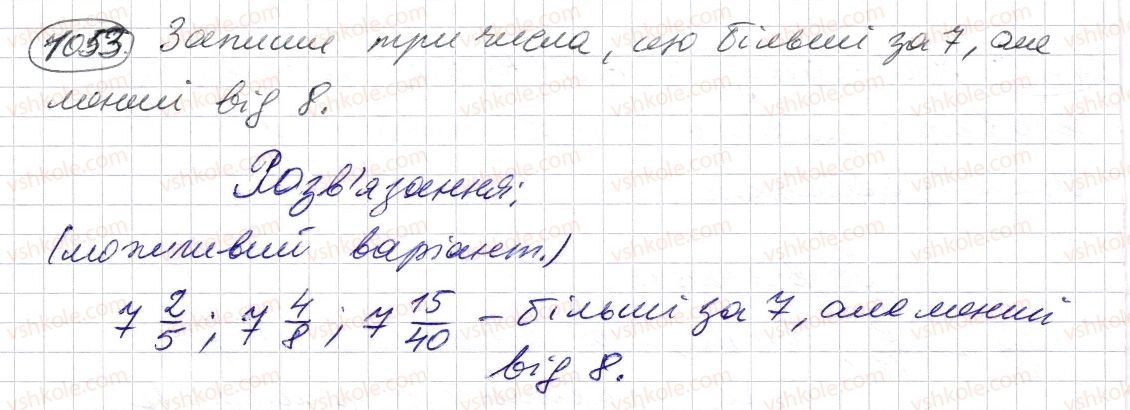 1053. Запиши три числа, що більші за 7, але
менші від 8.
Розв'язання:
(можливий варіант.)
7 2/5 ; 7 4/8 ; 7 15/40 – більші за 7, але менші
від 8.